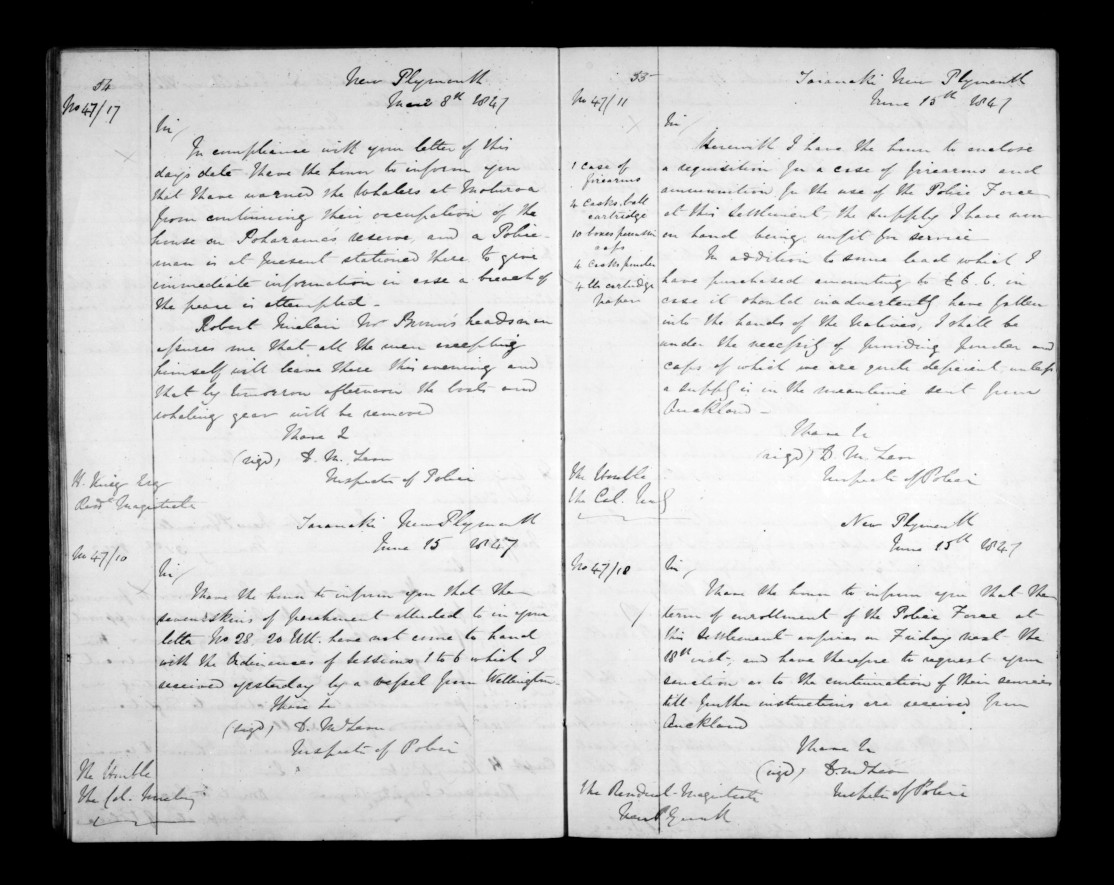 54
New Plymouth
June 8th 1847
No 47/17
Sir/
In compliance with your letter of this
day's date I have the honor to inform you
that I have warned the Whalers at Moturoa
from continuing their occupation of the
house on Poharama's reserve, and a Police-
man is at present stationed there to give
immediate information in case a breach of
the peace is attempted.
Robert Sinclair Mr Brown's headsman
assures me that all the men excepting
himself will leave there this evening and
that by tomorrow afternoon the boats and
whaling gear will be removed
I have &c
(sigd) D. McLean
Inspector of Police
H. King Esq
Resdt Magistrate
Taranaki New Plymouth
June 15 1847
No 47/10
Sir/
I have the honor to inform you that the
seven skins of parchment alluded to in your
letter No 28, 20 Ult. have not come to hand
with the Ordinances of Sessions 1 to 6 which I
received yesterday by a vessel from Wellington
I have &c
(sigd) D. McLean
Inspector of Police
The Honble
The Col. Secretary
55
Taranaki New Plymouth
June 15th 1847
No 47/11
Sir/
Herewith I have the honor to enclose
a requisition for a case of firearms and
ammunition for the use of the Police Force
at this Settlement, the supply I have now
on hand being unfit for service
1 case of
firearms
4 casks ball
cartridge
10 boxes percussn
caps
4 casks powder
4 lbs cartridge
papers
In addition to some lead which I
have purchased amounting to £6.6. in
case it should inadvertently have fallen
into the hands of the Natives, I shall be
under the necessity of providing powder and
caps of which we are quite deficient unless
a supply is in the meantime sent from
Auckland
I have &c
(sigd) D. McLean
Inspector of Police
The Honble
the Col. Secy
New Plymouth
June 15th 1847
No 47/18
Sir/
I have the honor to inform you that the
term of enrollment of the Police Force at
this Settlement expires on Friday next the
18th inst; and have therefore to request your
sanction as to the continuation of their services
till further instructions are received from
Auckland
I have &c
(sigd) D. McLean
Inspector of Police
The Resident Magistrate
New Plymouth